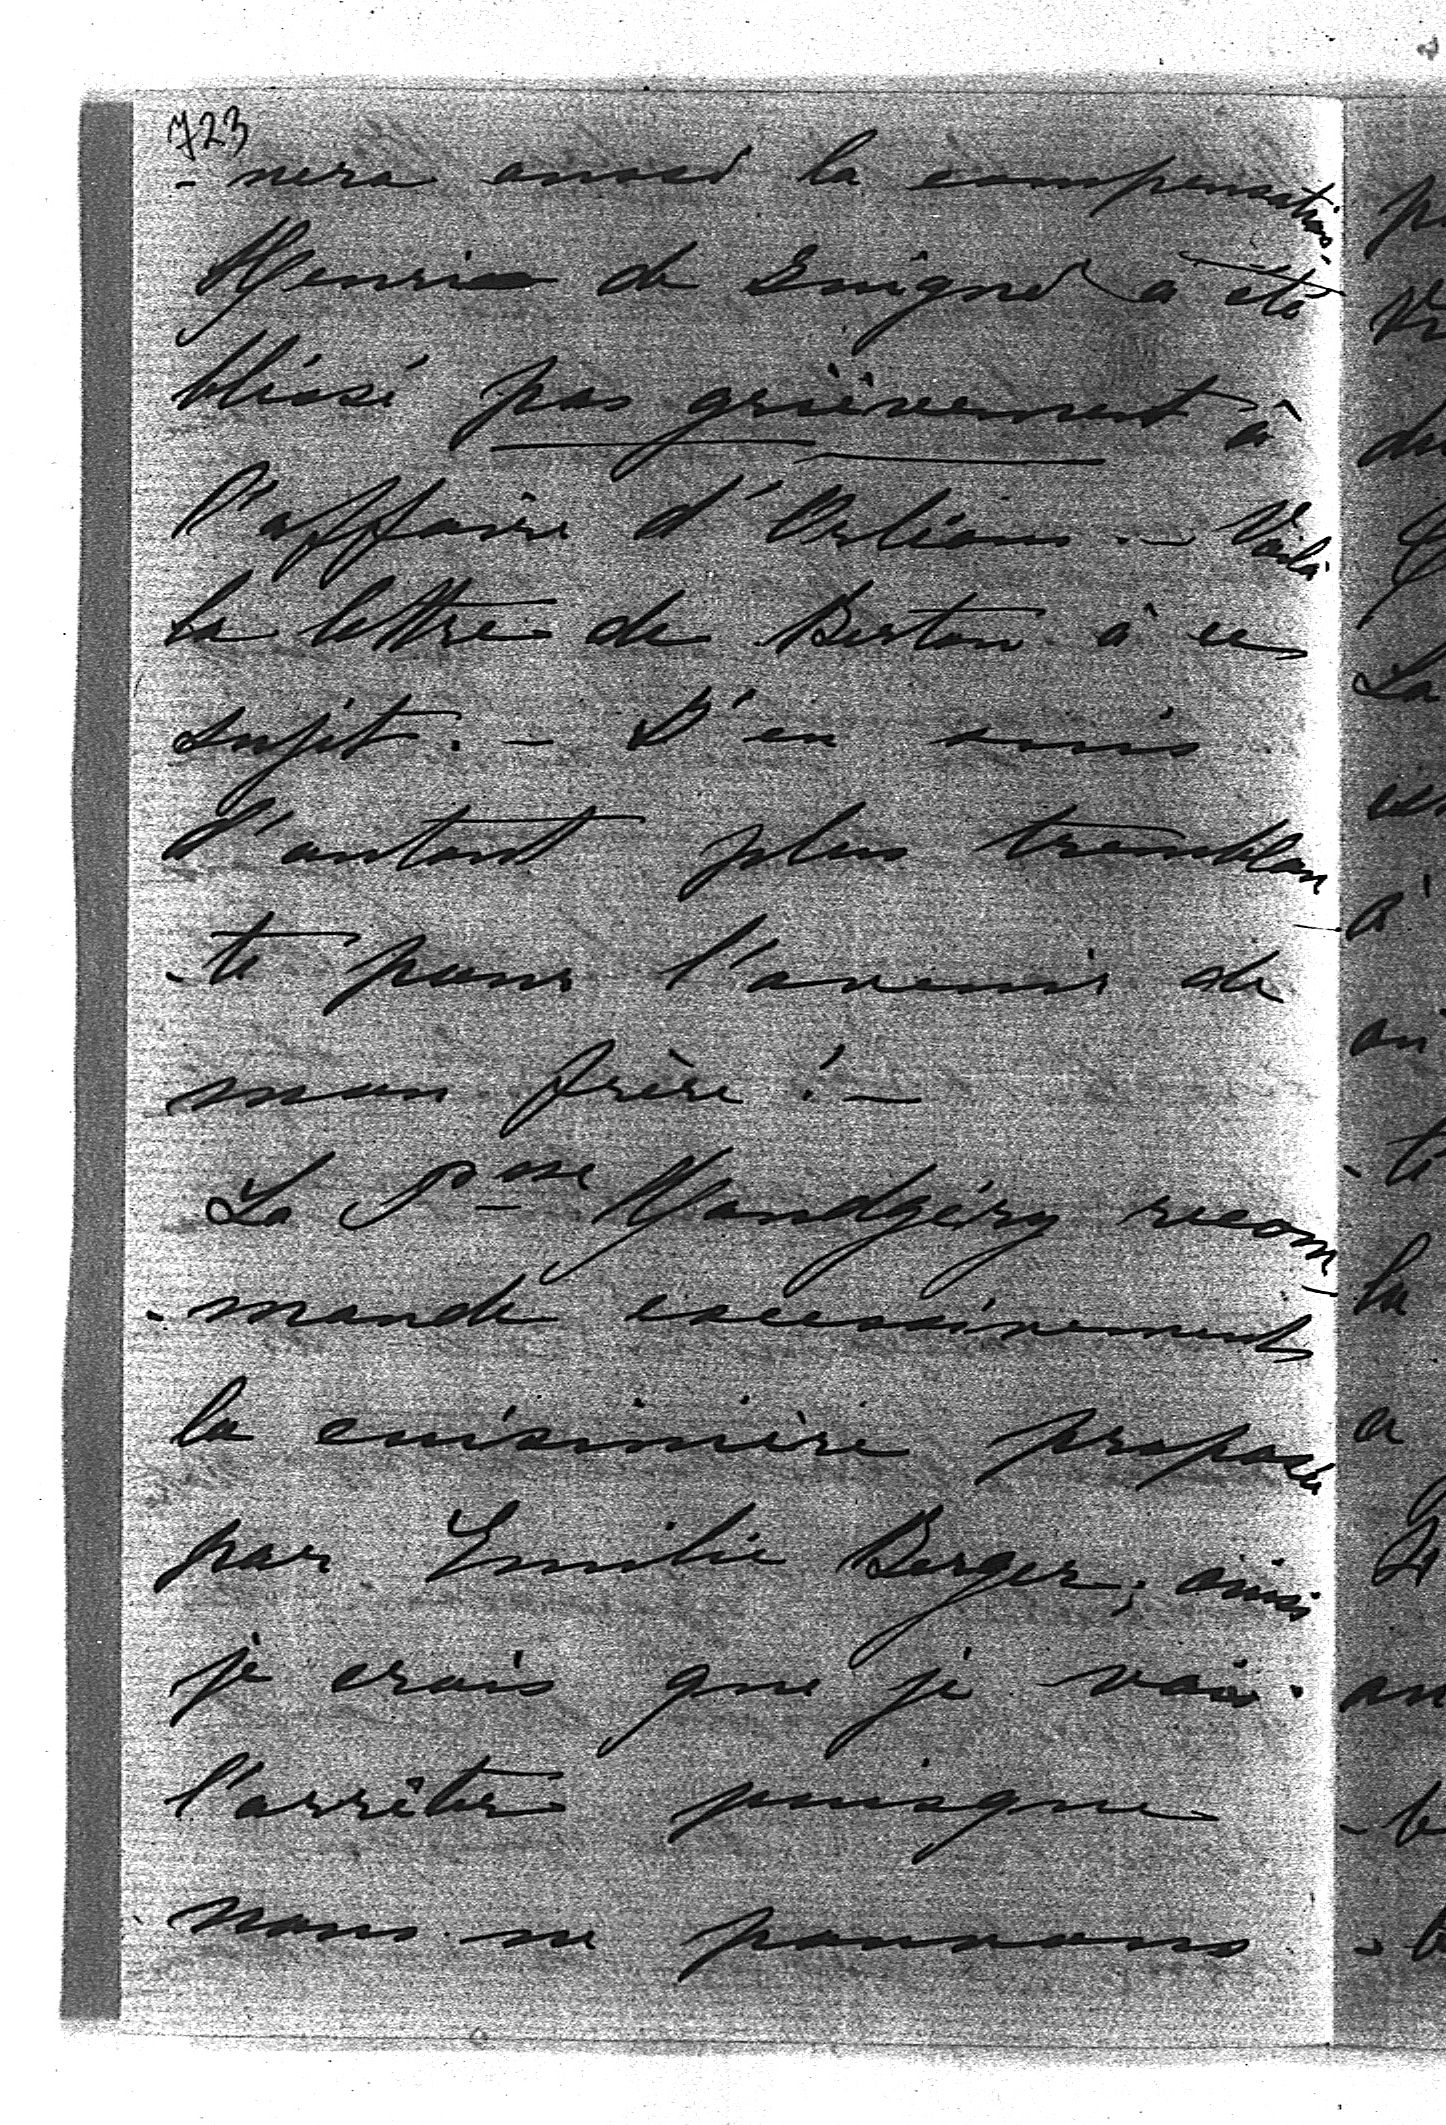 723
- nera aussi la compensation.
Henri de Guigné a été
blessé pas grièvement à
l'affaire d'Orléans. - Voilà
la lettre de Berton à ce
sujet. - J'en suis
d'autant plus tremblan
- te pour l'avenir de
mon frère ! -
La Psse Handjéry recom
- mande excessivement
la cuisinière proposée
par Emilie Berger ; ainsi
je crois que je vais
l'arrêter puisque
nous ne pouvons